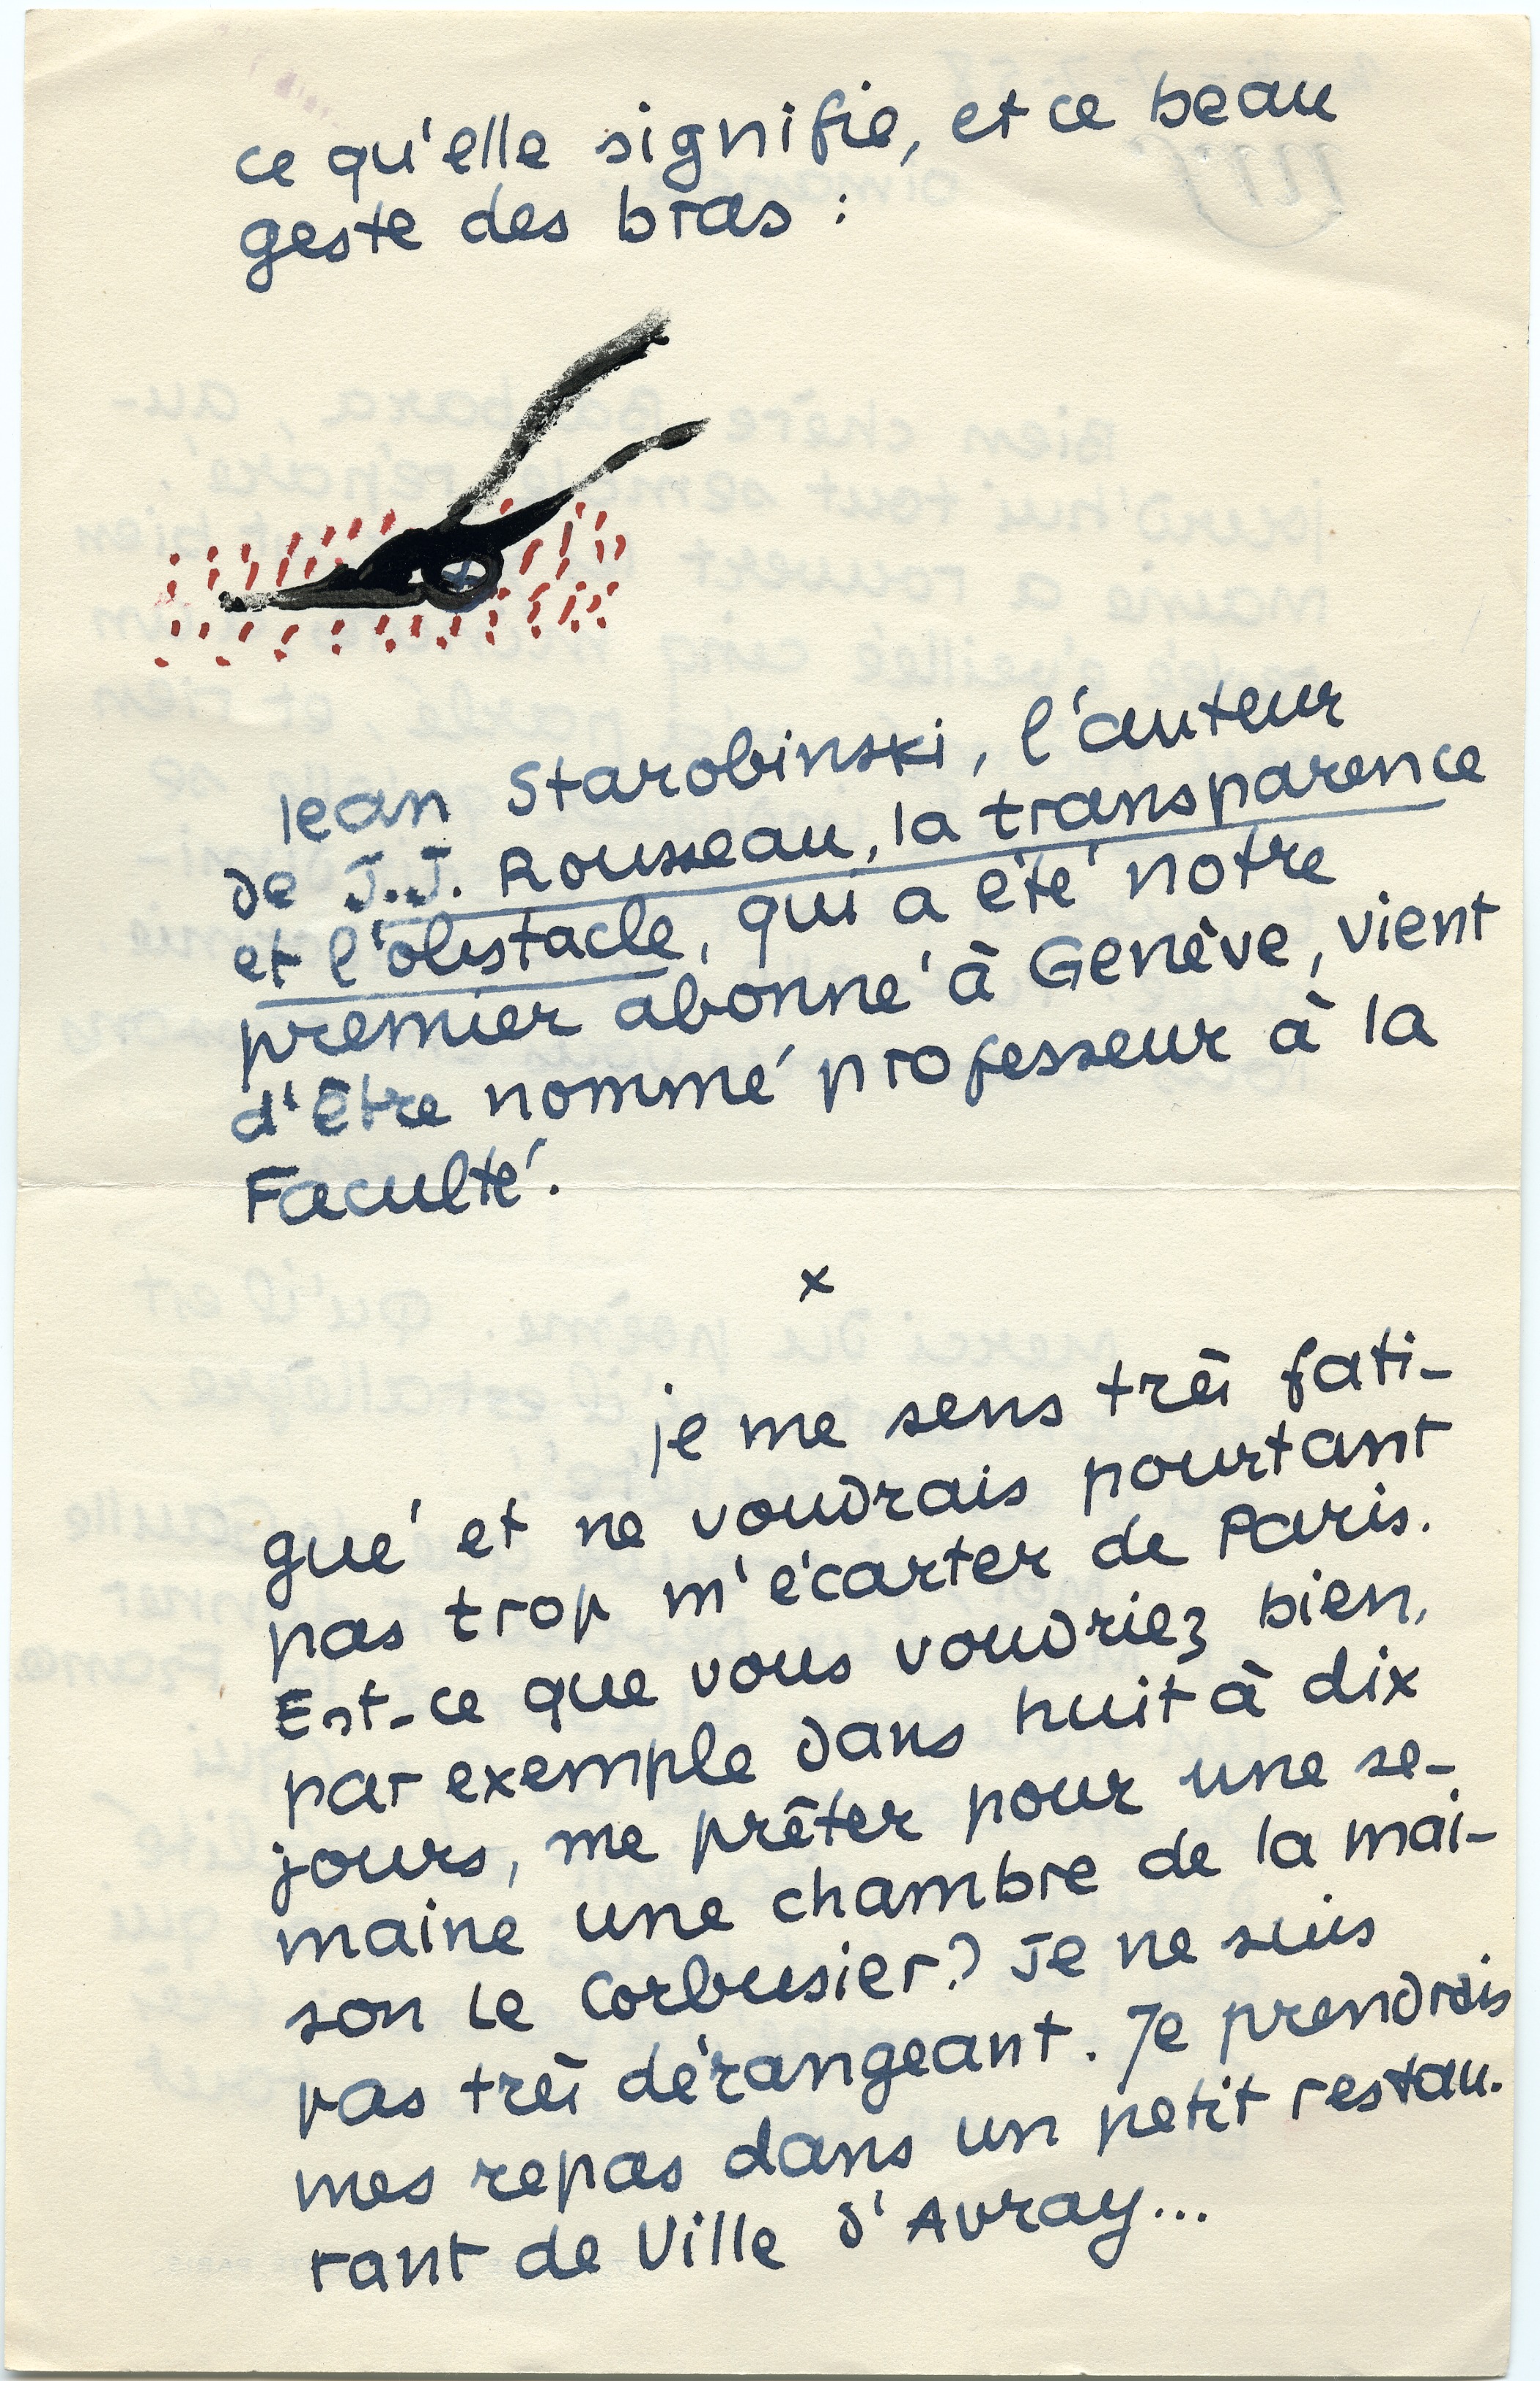 ce qu'elle signifie, et ce beau
geste des bras :
Jean Starobinski, l'auteur
de J.J. Rousseau, la transparence
et l'obstacle, qui a été notre
premier abonné à Genève, vient
d'être nommé professeur à la
Faculté.
x
je me sens très fati-
gué et ne voudrais pourtant
pas trop m'écarter de Paris.
Est-ce que vous voudriez bien,
par exemple dans huit à dix
jours, me prêter pour une se-
maine une chambre de la mai-
son Le Corbusier? Je ne suis
pas très dérangeant. Je prendrais
mes repas dans un petit restau-
rant de Ville d'Avray...